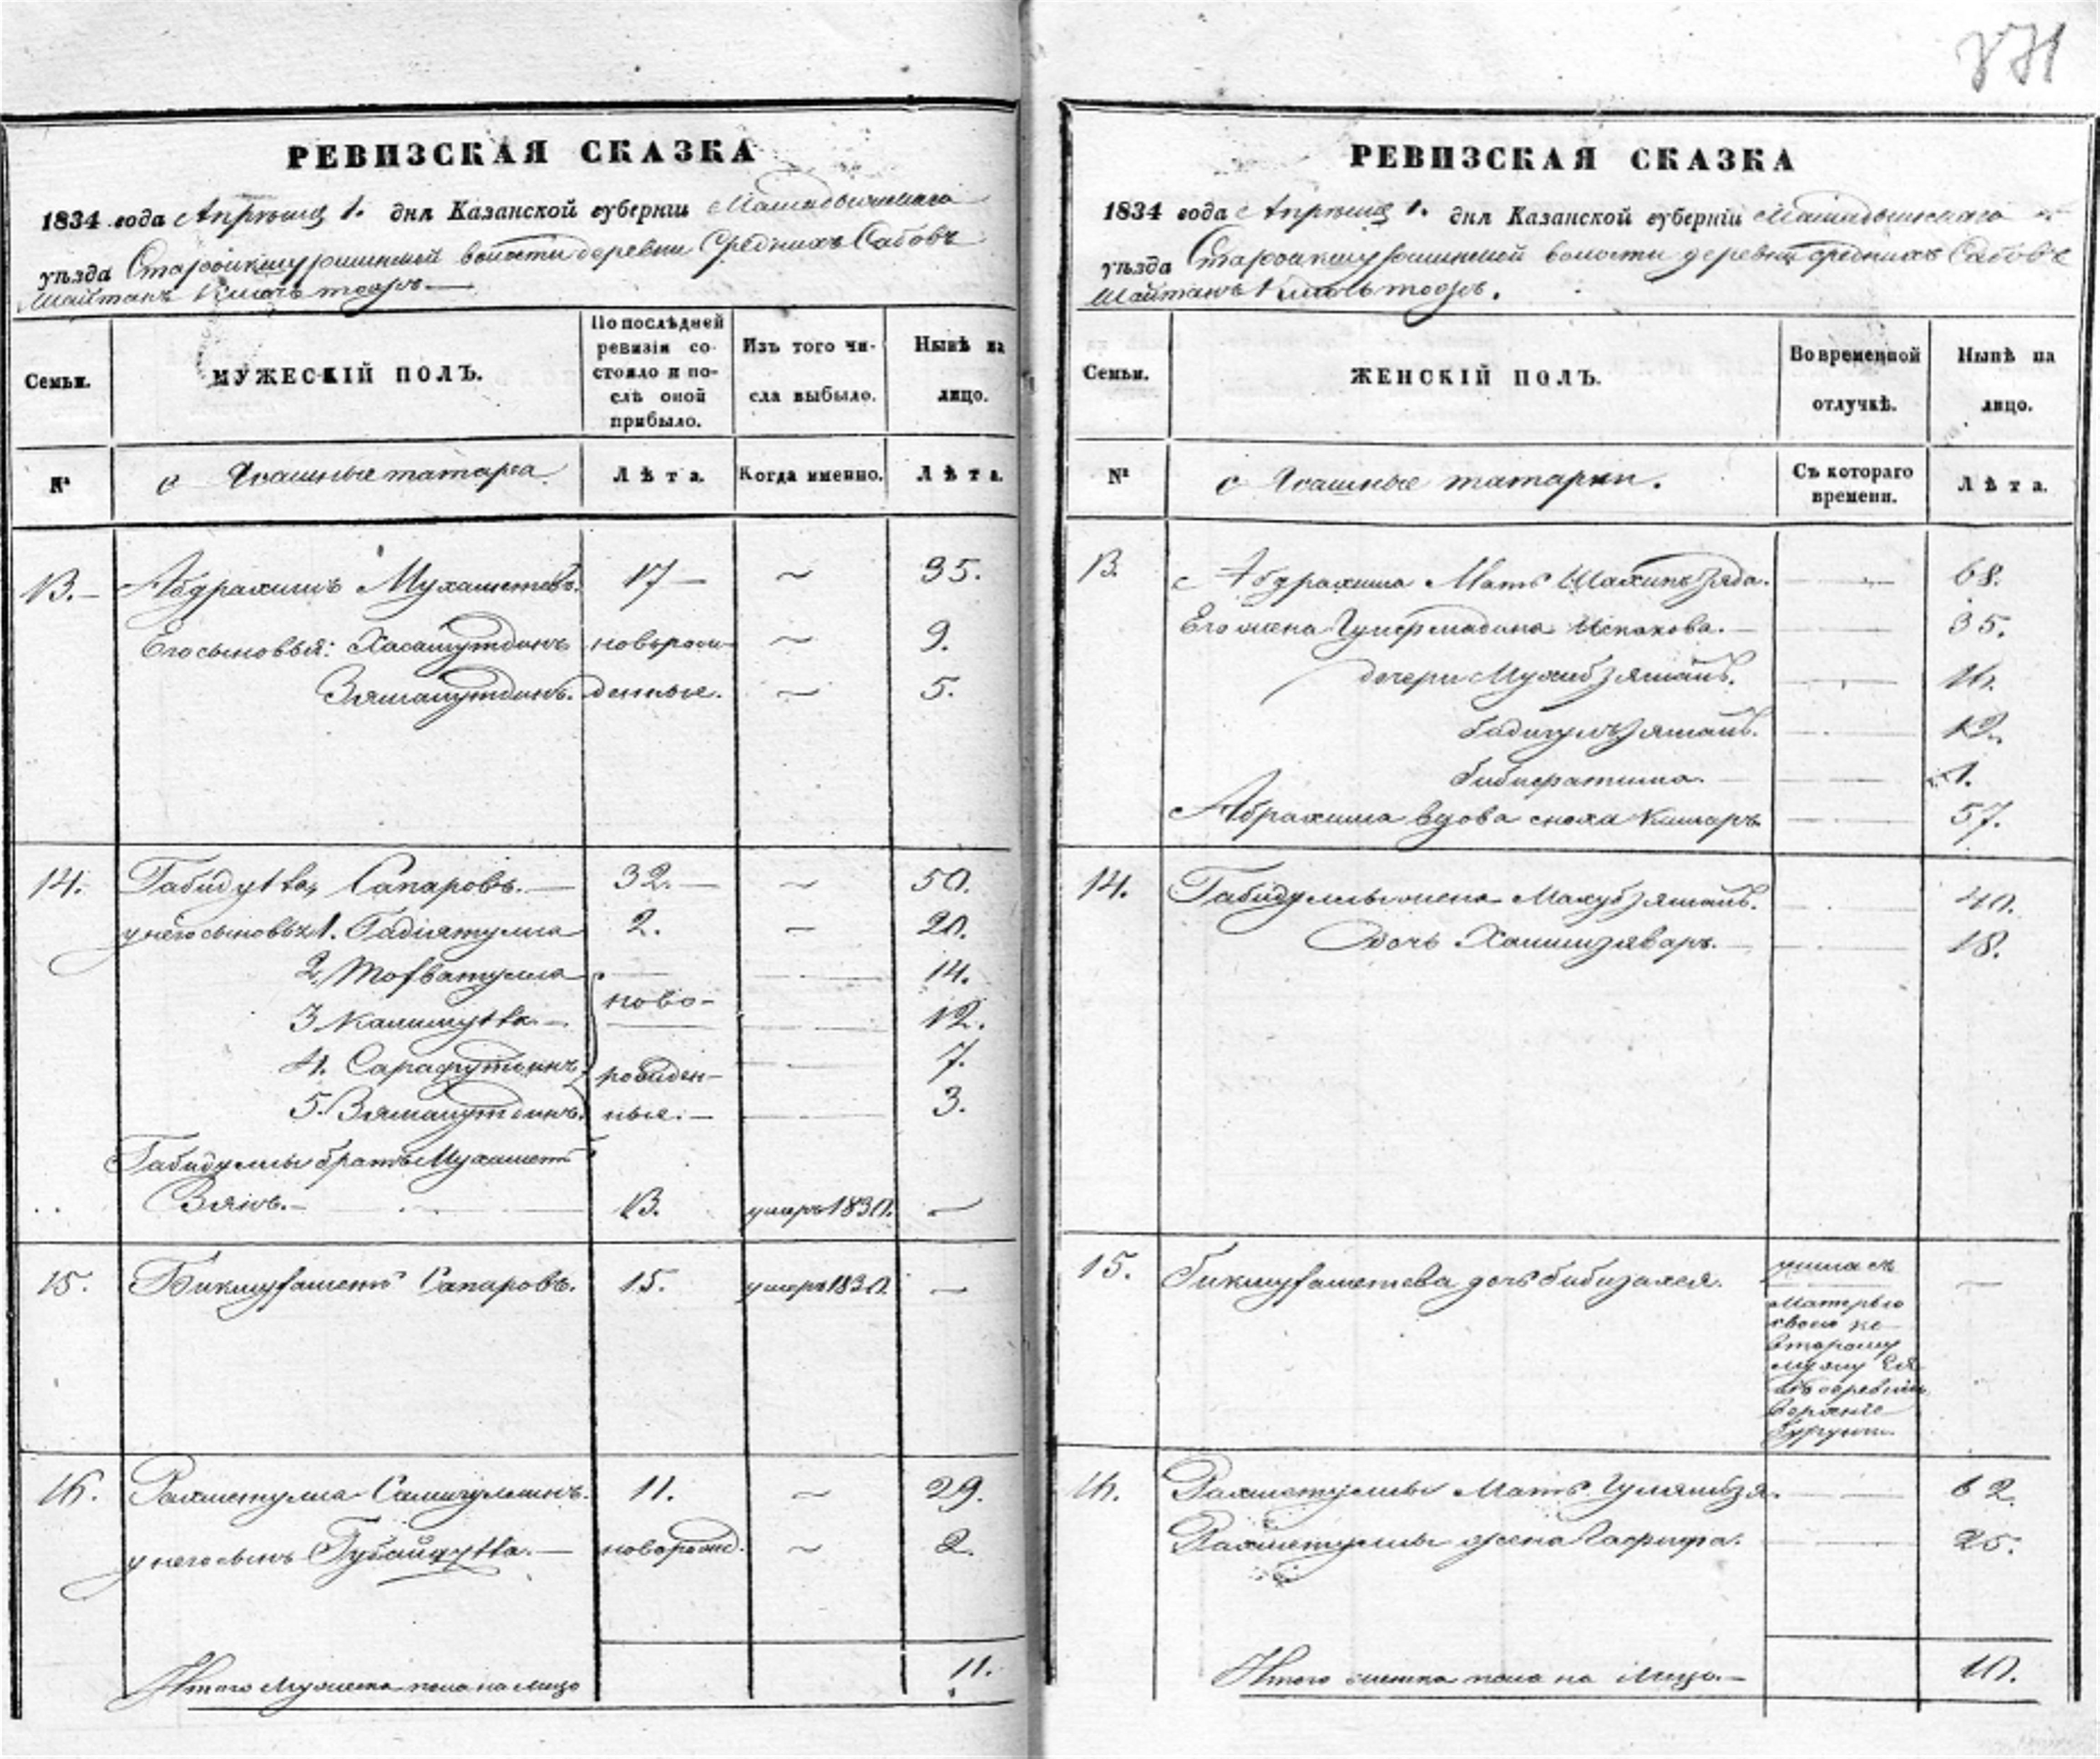 РЕВИЗСКАЯ СКАЗКА
1834 года Апреля 1. дня Казанской губерніи Мамадышскаго
уѣзда волости деревни Среднихъ Сабовъ
Шайтанъ тожъ.
Семьи. МУЖЕСКІЙ ПОЛЪ. По послѣдней ревизіи состояло и послѣ оной прибыло. Изъ того числа выбыло. Нынѣ на лицо.
№ Ясашные татара Лѣта. Когда именно. Лѣта.
13. Абдрахимъ Мухаметевъ. 17 35.
Его сыновья: Хасамутдинъ новорож- 9.
Зямалутдинъ. денные. 5.
14. Габидулла Сапаровъ. 32. 50.
у него сыновья 1. Гадіятулла 2. 20.
2. 14.
3 Калимулла ново- 12.
4. Сарафутдинъ рожден- 7.
5. Зямалутдинъ. ные. 3.
Габидуллы братъ Мухамет
Зянъ. 13. умеръ 1830.
15. Сапаровъ. 15. умеръ 1830.
16. Рахметулла 11. 29.
у него сынъ Губайдулла. новорожд. 2.
Итого Мужеска пола на лицо 11.
VII
РЕВИЗСКАЯ СКАЗКА
1834 года Апреля 1. дня Казанской губерніи Мамадышскаго
уѣзда волости деревни Среднихъ Сабовъ
Шайтанъ тожъ.
Семьи. ЖЕНСКІЙ ПОЛЪ. Во временной отлучкѣ. Нынѣ на лицо.
№ Ясашные татарки. Съ котораго времени. Лѣта.
13. Абдрахима Мать 68.
Его жена Исхакова. 35.
дочери Мухибзямалъ. 16.
Бадигулъзямалъ. 12.
Бибифатима. 1.
Абрахима вдова сноха Камаръ. 57.
14. Габидуллы жена Махубзямалъ. 40.
Дочь 18.
15. дочь ушла съ
матерью
своей ко
второму
мужу Ея
въ деревню
верхніе
16. Рахметуллы Мать 62.
Рахметуллы жена 25.
Итого женска пола на лицо. 10.